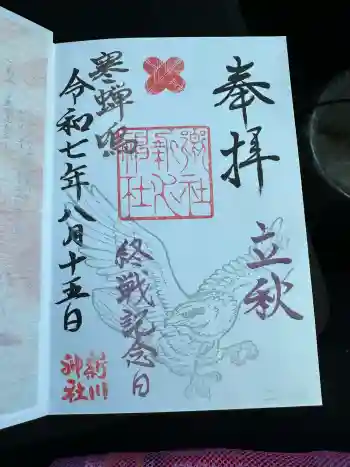 奉拝
立秋
郷社
新川
神社
終戦記念日
寒蝉鳴
令和七年八月十五日
新川
神社